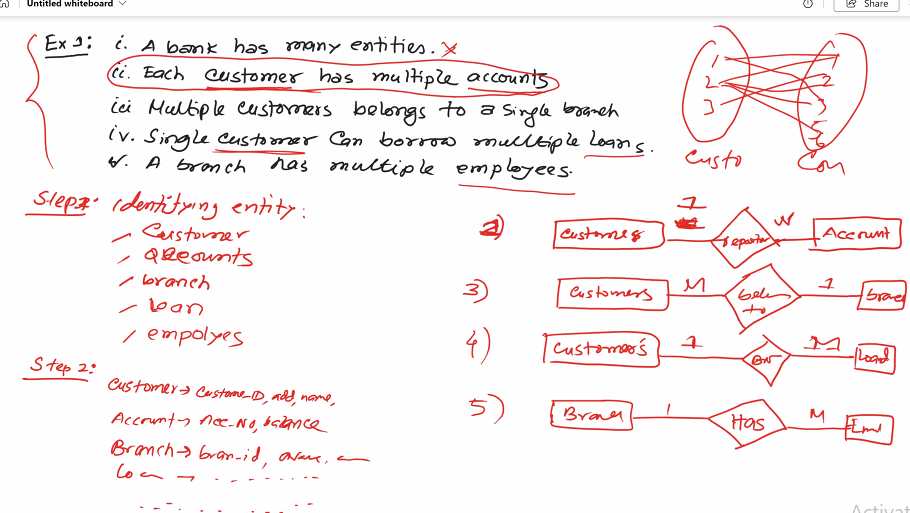 Untitled whiteboard
Share
Ex 1: i. A bank has many entities. x
ii. Each customer has multiple accounts
iii Multiple customers belongs to a single branch
iv. Single customer Can borrow multiple loans.
v. A branch has multiple employees.
1
2
3
1
2
3
5
6
Custo
Step 1: Identifying entity:
Customer
accounts
branch
loan
empolyes
Step 2:
Customer → Custome_ID, add, name,
Account → Acc-No, balance
Branch → bran-id,
Loan → - - - - - -
2) Customer 1 M Account
3) Customers M belon to 1 branch
4) Customer's 1 M Load
5) Branch 1 Has M Emd
Activat